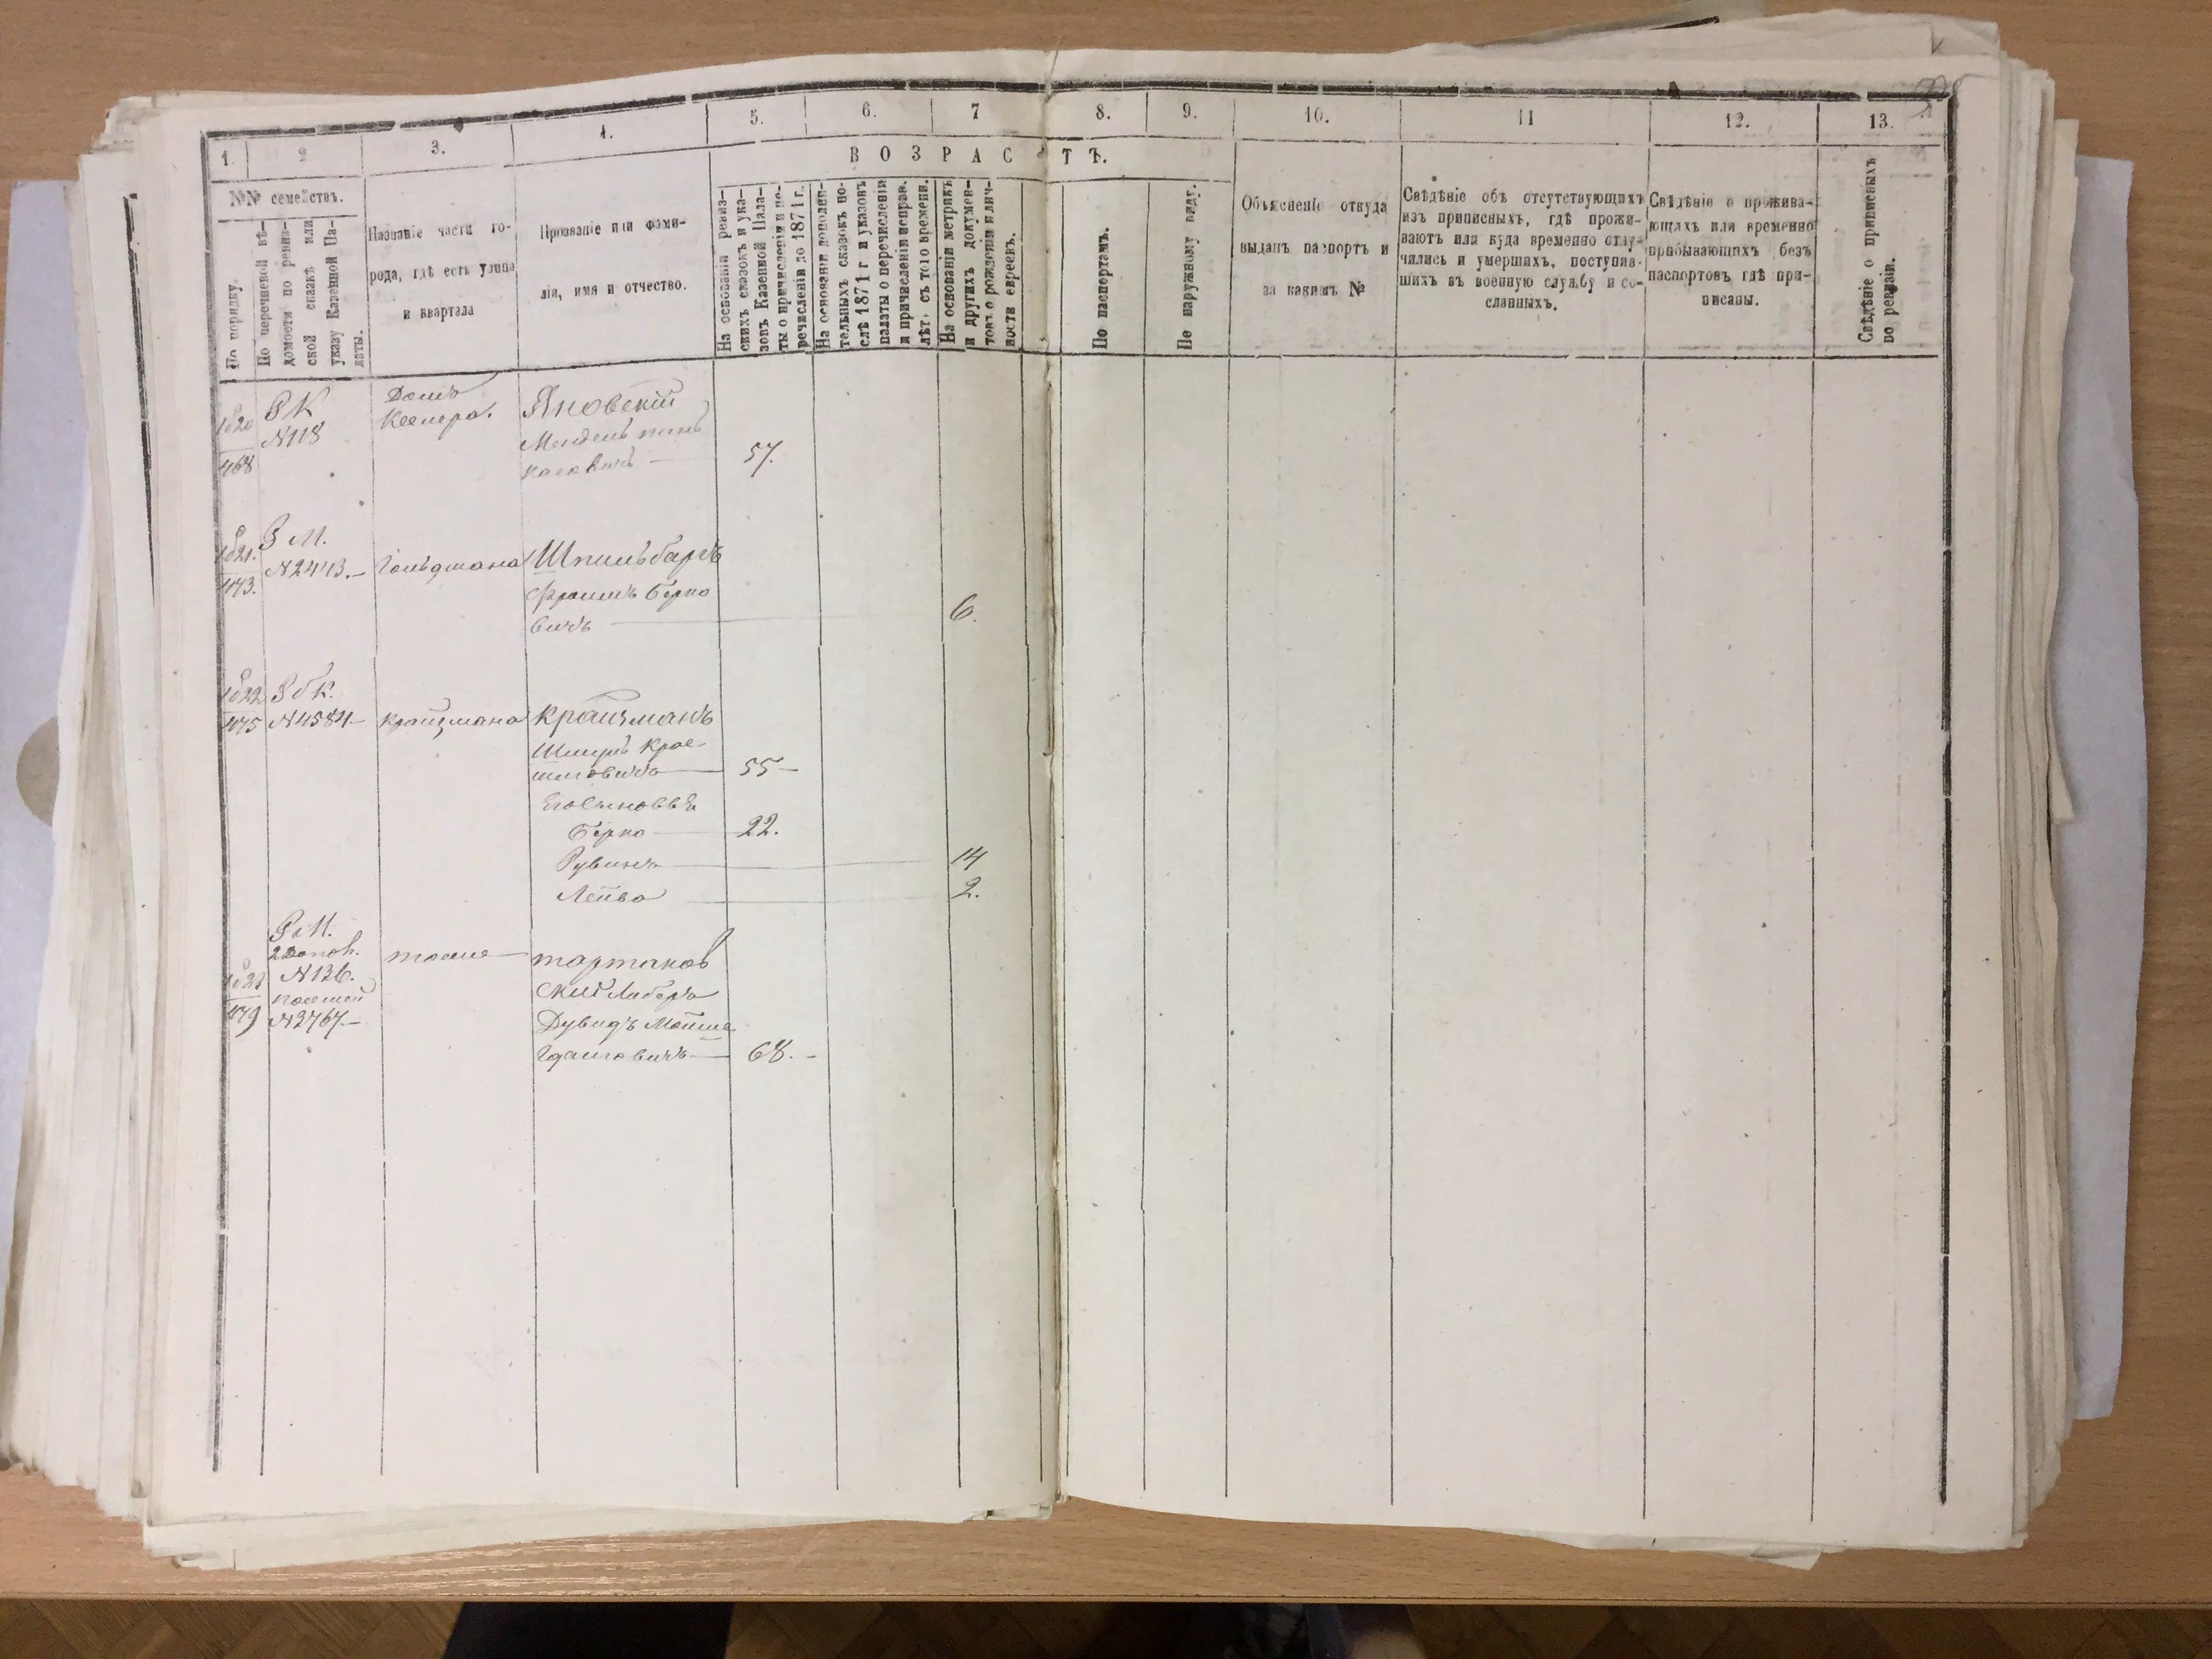 1. 2 3. 4. 5. 6. 7 8. 9. 10. 11 12. 13.
ВОЗРАСТЪ.
№№ семействъ.
По порядку.
По перечневой вѣ-
домости по ревиз-
ской сказкѣ или
указу Казенной Па-
латы.
Названіе части го-
рода, гдѣ есть улица
и квартала
Прозваніе или фами-
лія, имя и отчество.
На основаніи ревиз-
скихъ сказокъ и ука-
зовъ Казенной Пала-
ты о причисленіи и пе-
речисленіи до 1871 г.
На основаніи дополни-
тельныхъ сказокъ по-
слѣ 1871 г и указовъ
палаты о перечисленіи
и причисленіи исправ.
лѣт, съ того времени.
На основаніи метрикъ
и другихъ докумен-
товъ о рожденіи и лич-
ности евреевъ.
По паспортамъ.
По наружному виду.
Объясненіе откуда
выданъ паспортъ и
за какимъ №
Свѣдѣніе объ отсутствующихъ
изъ приписныхъ, гдѣ прожи-
ваютъ или куда временно отлу-
чились и умершихъ, поступив-
шихъ въ военную службу и со-
сланныхъ.
Свѣдѣніе о прожива-
ющихъ или временно
прибывающихъ безъ
паспортовъ гдѣ при-
писаны.
Свѣдѣніе о приписныхъ
по ревизіи.
1620
468
N118
Домъ
Яновскій
Мендель
57.
1621.
473.
N2443.—
Гольдмана
Шпильбаргъ
Фроимъ Берко
вичъ
6.
1622
475
N4584—
Крайзмана
Крайзманъ
Шмуль
55—
Его Сыновья
Берко
22.
Рувинъ
14
Лейба
2.
N136.
N2767.—
479
тоже
тартаков
скій Либеръ
Дувидъ Мойше
68.—